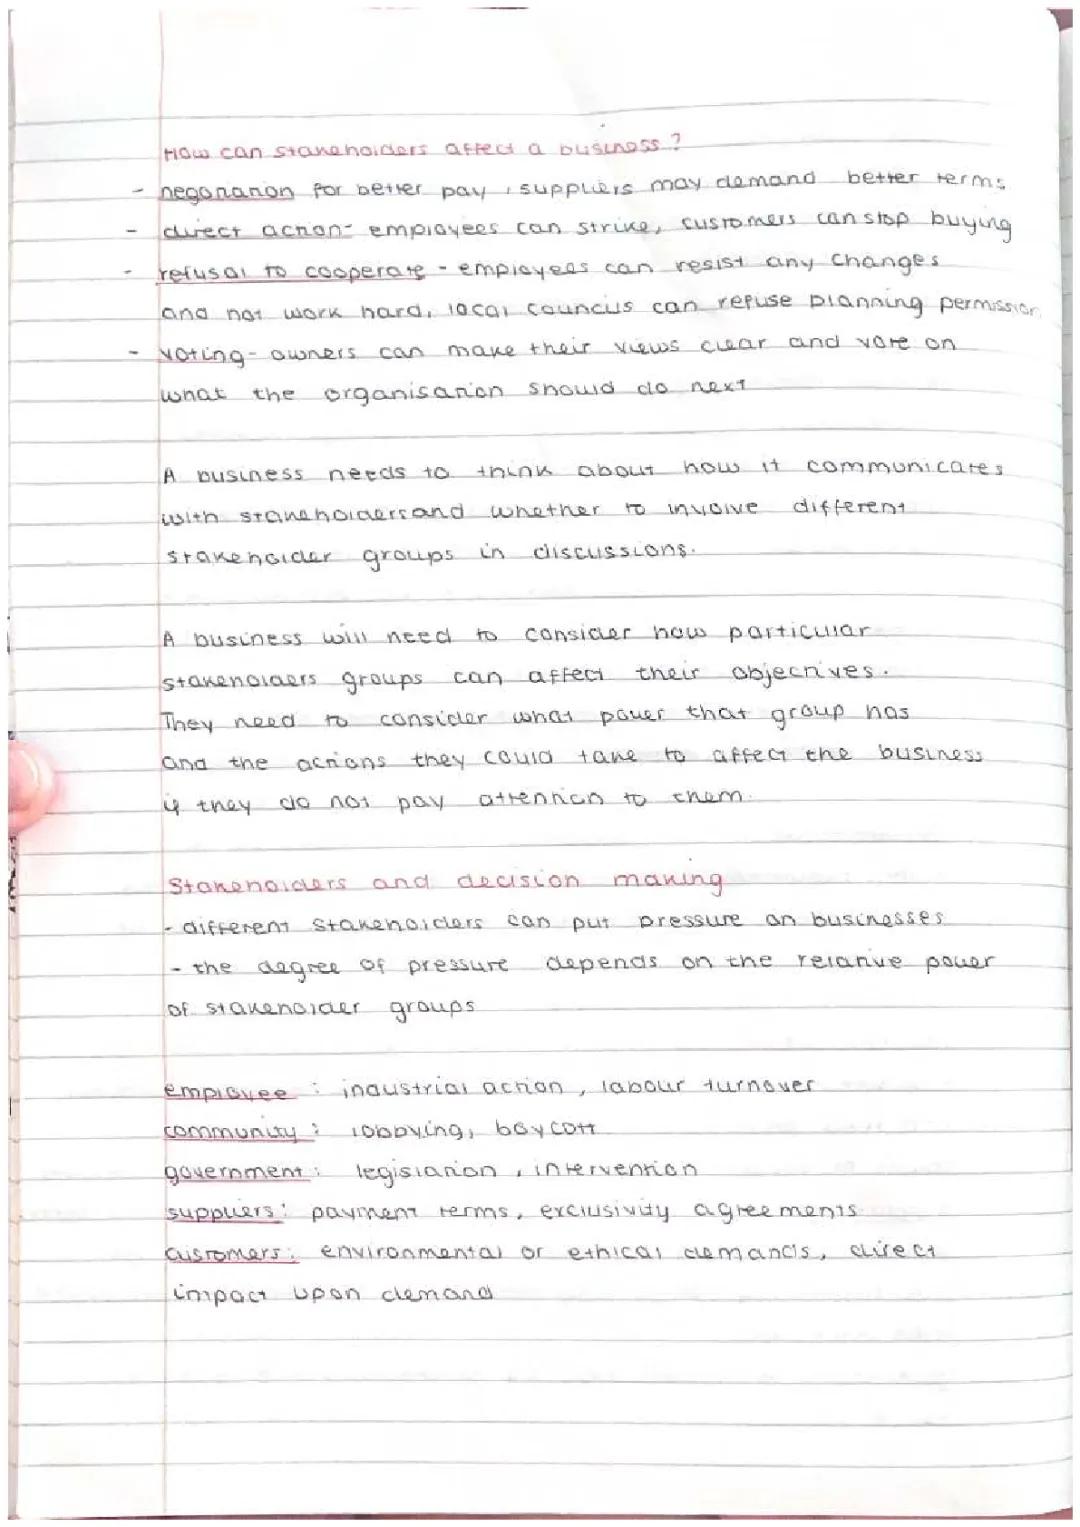 How can stakeholders affect a business?
- negotiation for better pay, suppliers may demand better terms
- direct action- employees can strike, customers can stop buying
- refusal to cooperate - employees can resist any changes
and not work hard, local councils can refuse planning permission
- voting- owners can make their views clear and vote on
what the organisation should do next
A business needs to think about how it communicates
with stakeholders and whether to involve different
stakeholder groups in discussions.
A business will need to consider how particular
stakeholders groups can affect their objectives.
They need to consider what power that group has
and the actions they could take to affect the business
if they do not pay attention to them.
Stakeholders and decision making
- different stakeholders can put pressure on businesses
- the degree of pressure depends on the relative power
of stakeholder groups
employee : industrial action, labour turnover
community : lobbying, boycott
government : legislation, intervention
suppliers : payment terms, exclusivity agreements
customers : environmental or ethical demands, direct
impact upon demand